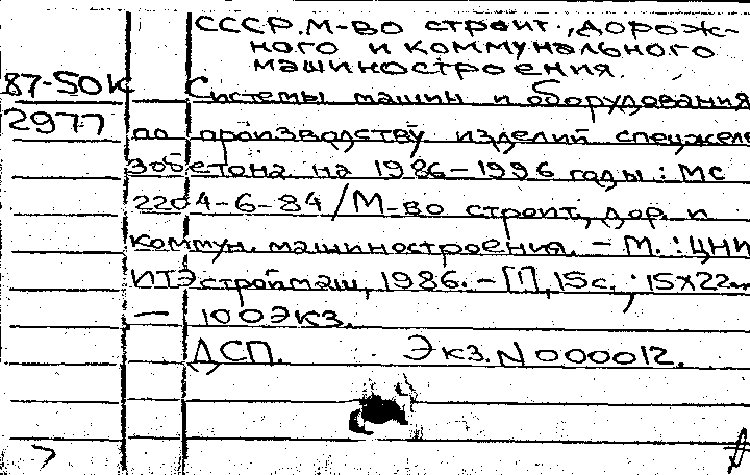 СССР. М-во строит., дорож-
ного и коммунального
машиностроения.
87-50К Системы машин и оборудования
2977 по производству изделий спецжеле
зобетона на 1986-1996 годы: МС
2204-6-84/М-во строит., дор. и
коммун. машиностроения. - М.: ЦНИ
ИТЭстроймаш, 1986. - [], 15с.; 15х22см
— 100экз.
ДСП. Экз. N 000012.